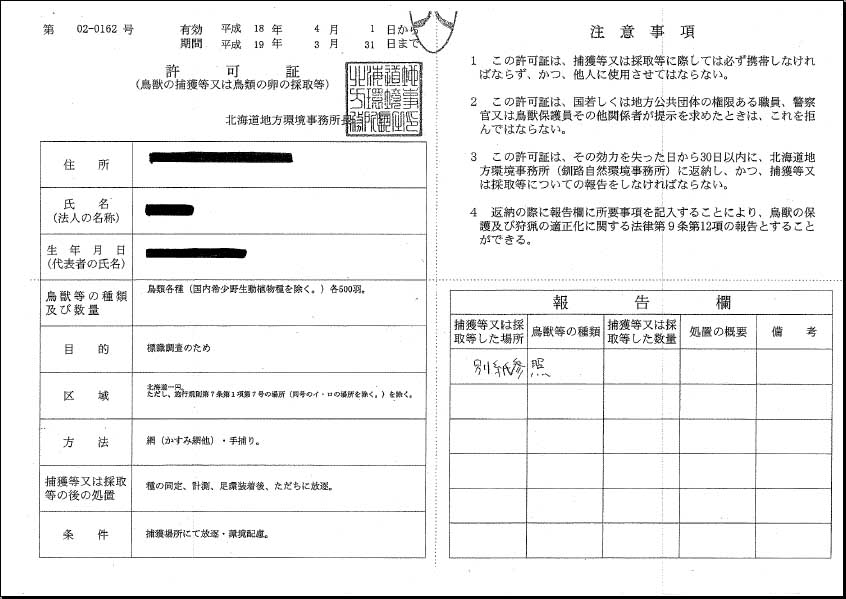 第 02-0162 号
有効期間 平成 18 年 4 月 1 日から
平成 19 年 3 月 31 日まで
許可証
(鳥獣の捕獲等又は鳥類の卵の採取等)
北海道地方環境事務所長
住所
氏名
(法人の名称)
生年月日
(代表者の氏名)
鳥獣等の種類及び数量
鳥類各種(国内希少野生動植物種を除く。)各500羽。
目的
標識調査のため
区域
北海道一円。
ただし、施行規則第7条第1項第7号の場所(同号のイ・ロの場所を除く。)を除く。
方法
網(かすみ網他)・手捕り。
捕獲等又は採取等の後の処置
種の同定、計測、足環装着後、ただちに放逐。
条件
捕獲場所にて放逐・環境配慮。
注意事項
1 この許可証は、捕獲等又は採取等に際しては必ず携帯しなけれ
ばならず、かつ、他人に使用させてはならない。
2 この許可証は、国若しくは地方公共団体の権限ある職員、警察
官又は鳥獣保護員その他関係者が提示を求めたときは、これを拒
んではならない。
3 この許可証は、その効力を失った日から30日以内に、北海道地
方環境事務所(釧路自然環境事務所)に返納し、かつ、捕獲等又
は採取等についての報告をしなければならない。
4 返納の際に報告欄に所要事項を記入することにより、鳥獣の保
護及び狩猟の適正化に関する法律第9条第12項の報告とすること
ができる。
報告欄
捕獲等又は採取等した場所
鳥獣等の種類
捕獲等又は採取等した数量
処置の概要
備考
別紙参照